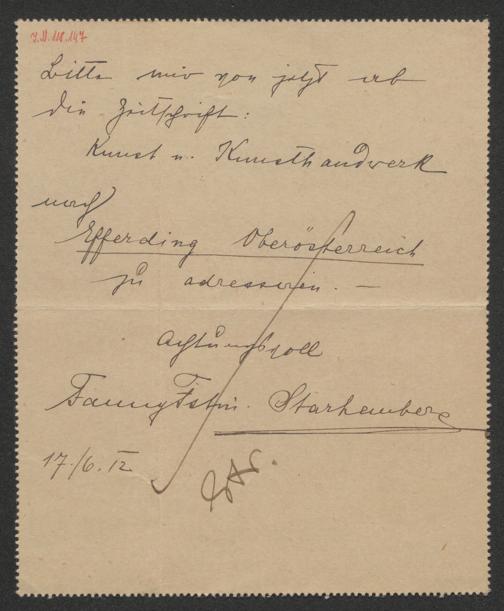 Bitte mir von jetzt ab
die Zeitschrift:
Kunst u. Kunsthandwerk
nach
Efferding Oberösterreich
zu adressieren. —
Achtungsvoll
Fanny Fstin. Starhemberg
17./6. 12